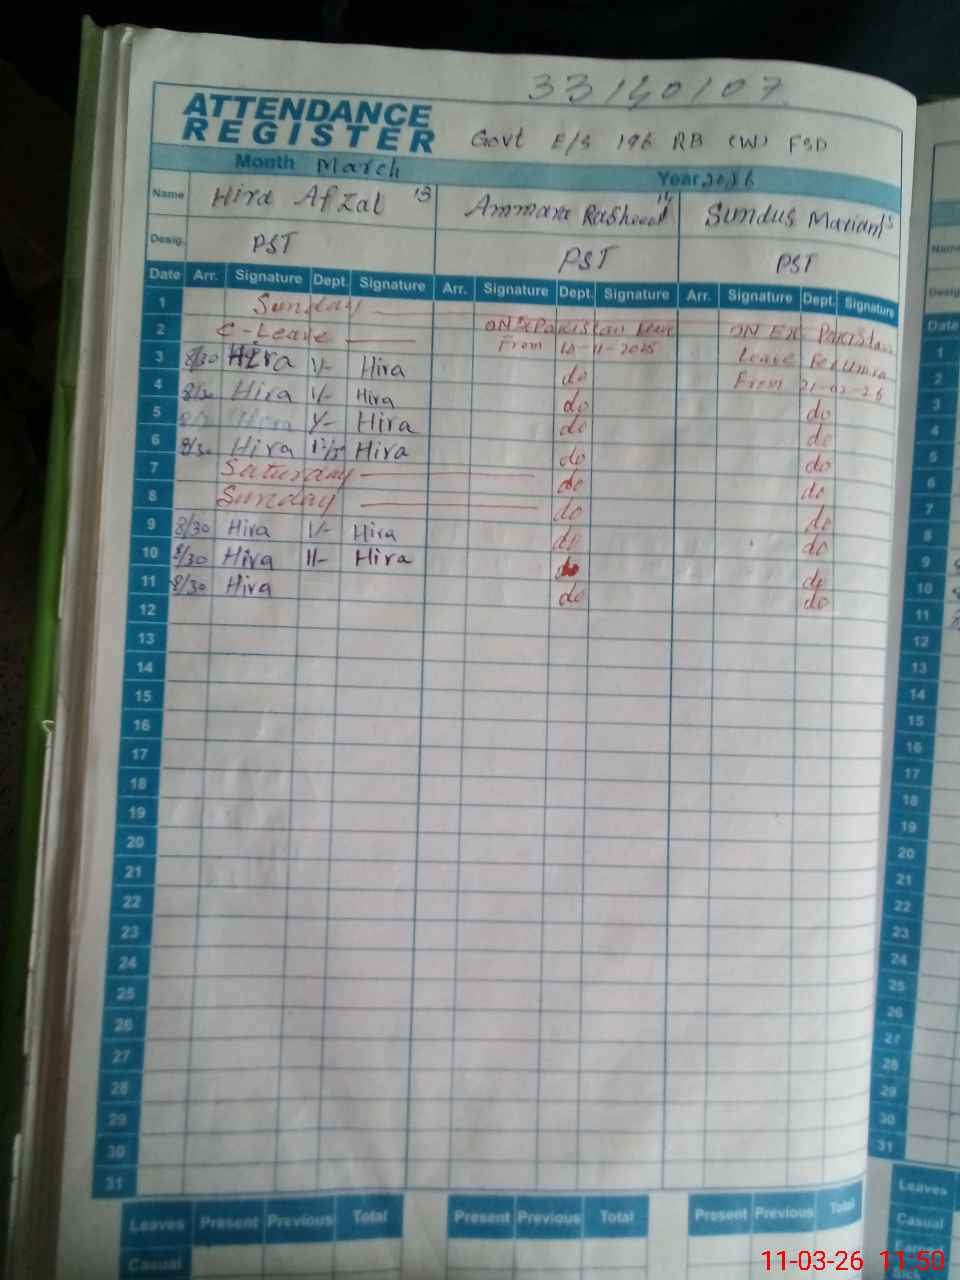 33140107
ATTENDANCE
REGISTER
Govt E/S 196 RB (W) FSD
Month March Year 2026
Name Hira Afzal 13 Ammara Rasheed 14 Sundus Mariam
Desig. PST PST PST
Date Arr. Signature Dept. Signature Arr. Signature Dept. Signature Arr. Signature Dept. Signature
1 Sunday
2 C-Leave ON Ex Pakistan Leave ON EX Pakistan
From 11-2025 Leave For Umra
3 8/30 Hira 1/- Hira do From 21-02-26
4 8/30 Hira 1/- Hira do do
5 Hira Hira do do
6 8/30 Hira Hira do do
7 Saturday do do
8 Sunday do do
9 8/30 Hira 1/- Hira do do
10 8/30 Hira 11- Hira do do
11 8/30 Hira do do
12
13
14
15
16
17
18
19
20
21
22
23
24
25
26
27
28
29
30
31
Leaves Present Previous Total Present Previous Total Present Previous Total
Casual
Name
Date
1
2
3
4
5
6
7
8
9
10
11
12
13
14
15
16
17
18
19
20
21
22
23
24
25
26
27
28
29
30
31
Leaves
Casual
11-03-26 11:50